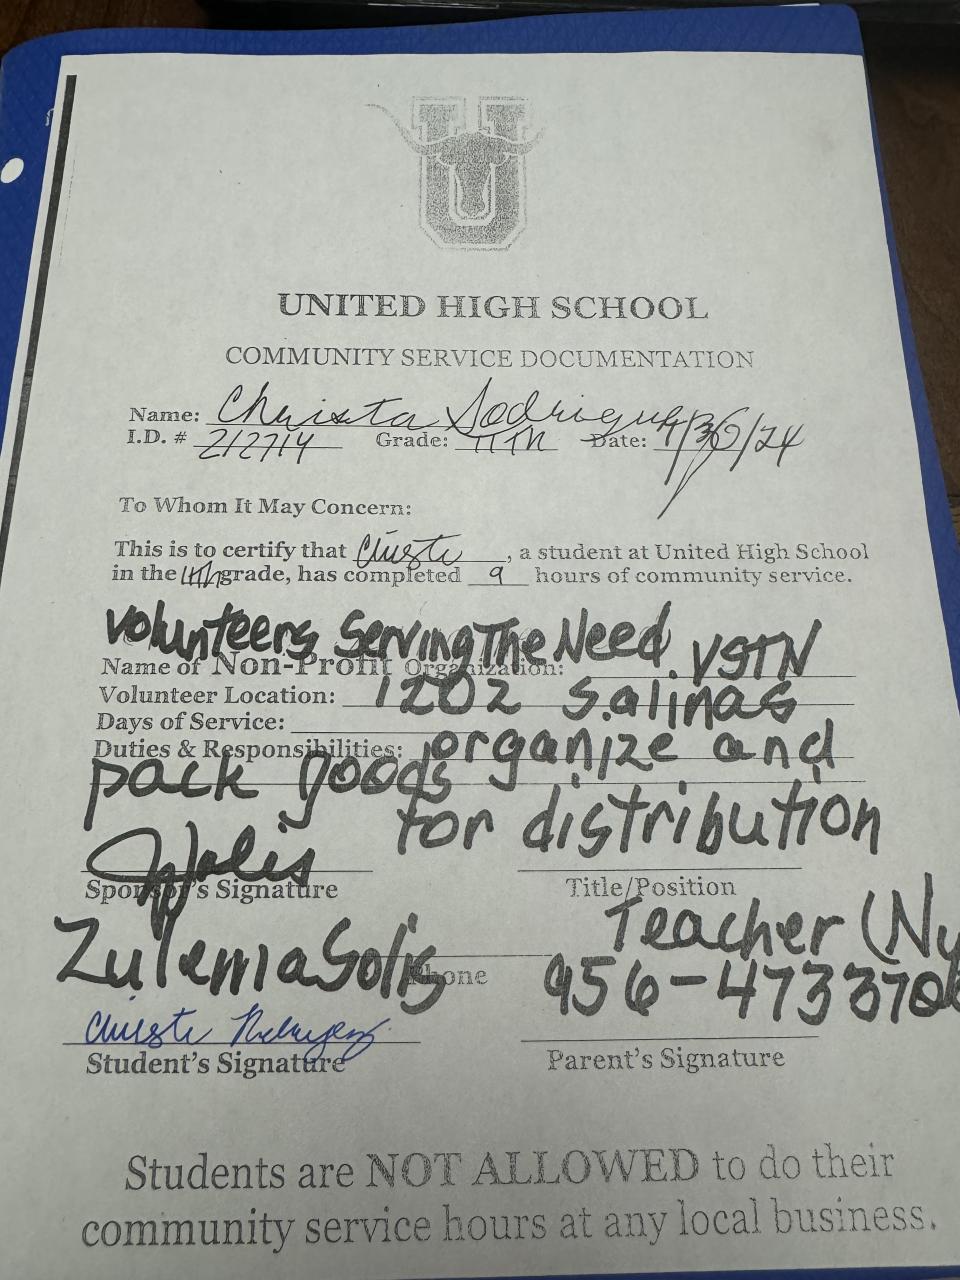 U
UNITED HIGH SCHOOL
COMMUNITY SERVICE DOCUMENTATION
Name: Christa Rodriguez
I.D. # 212714 Grade: 11th Date: /30/24
To Whom It May Concern:
This is to certify that Christa, a student at United High School
in the 11th grade, has completed 9 hours of community service.
Volunteers Serving The Need VSTN
Name of Non-Profit Organization:
Volunteer Location: 1202 Salinas
Days of Service:
Duties & Responsibilities: organize and
pack goods
for distribution
Solis
Sponsor's Signature Title/Position
Teacher (Ny
Zulema Solis
Phone 956-473
Christa
Student's Signature Parent's Signature
Students are NOT ALLOWED to do their
community service hours at any local business.